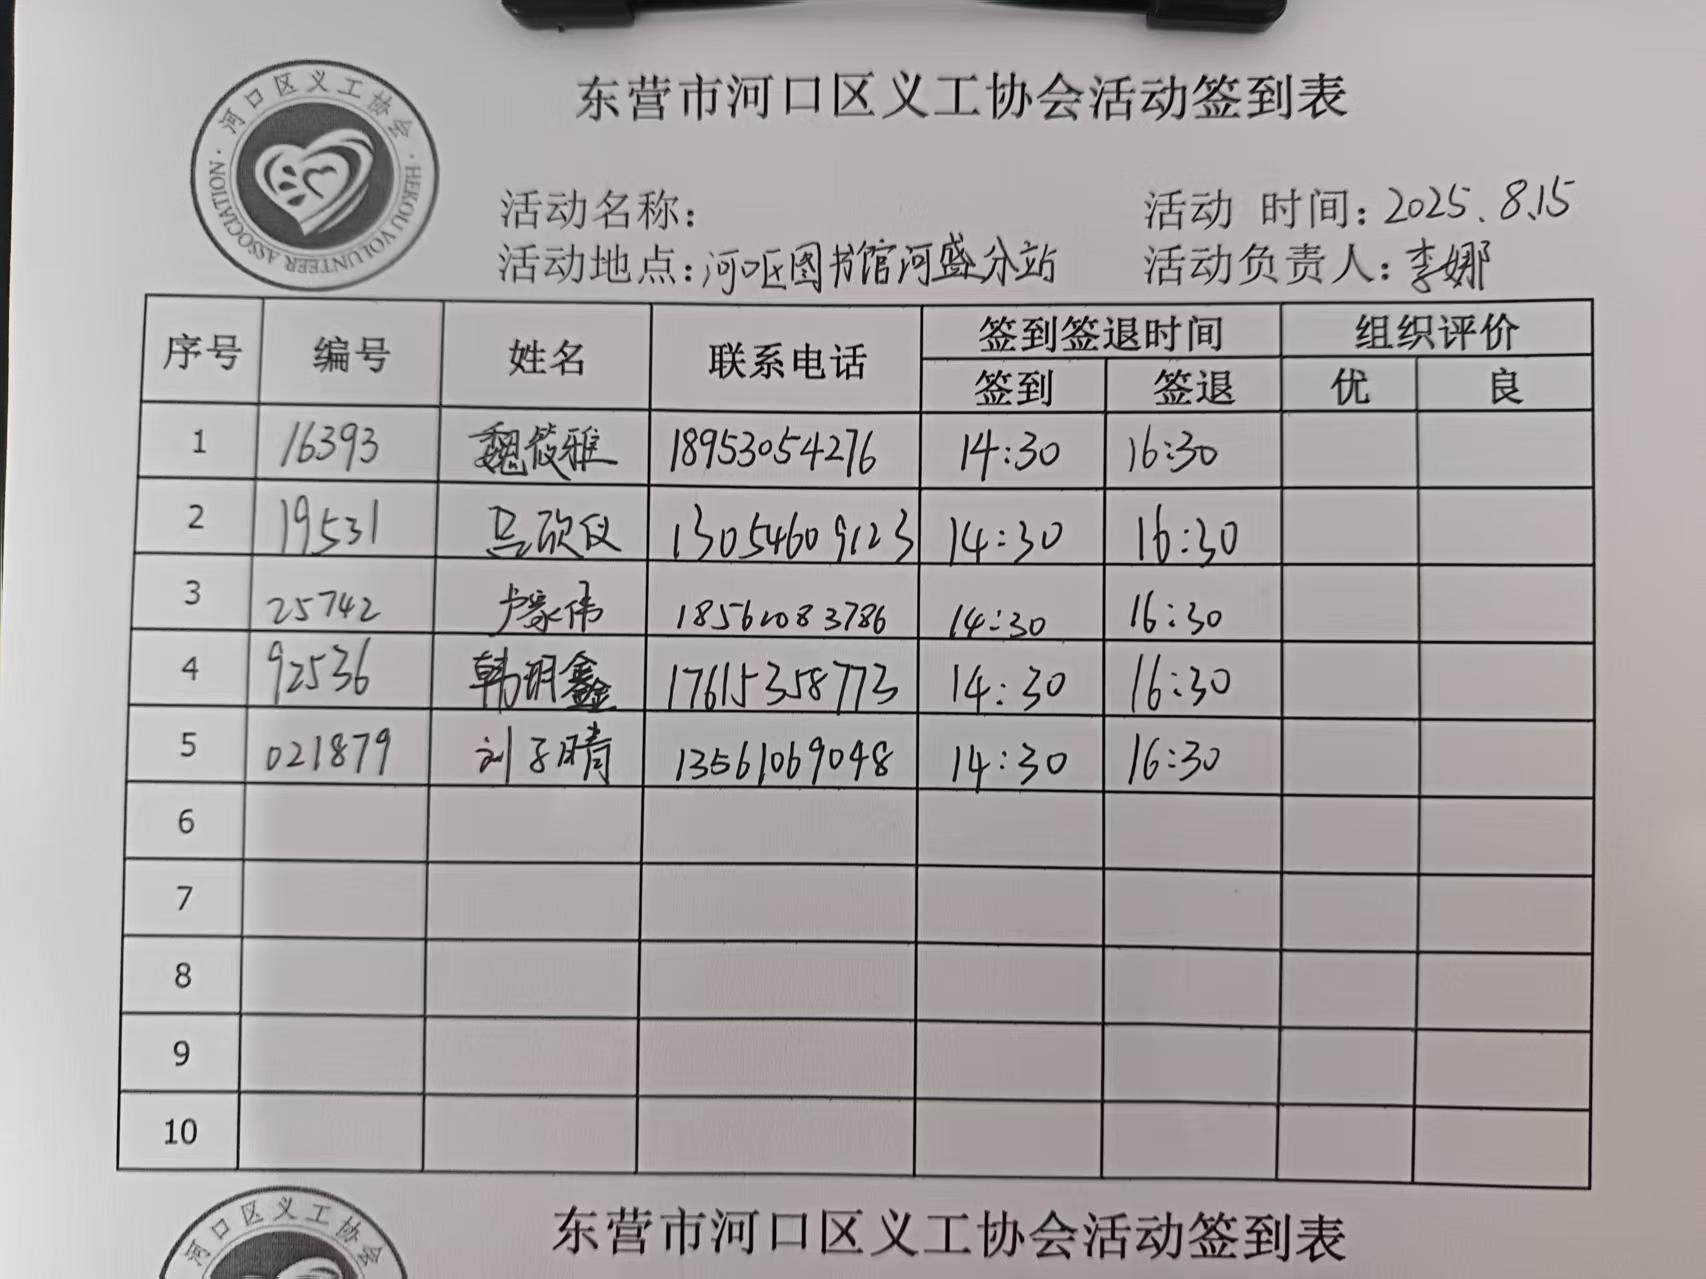 河口区义工协会
HEKOU VOLUNTEER ASSOCIATION
东营市河口区义工协会活动签到表
活动名称： 活动 时间：2025.8.15
活动地点：河口区图书馆河盛分站 活动负责人：李娜
序号 编号 姓名 联系电话 签到签退时间 组织评价
签到 签退 优 良
1 16393 魏筱雅 18953054276 14:30 16:30
2 19531 吴欣仪 13054609123 14:30 16:30
3 25742 卢家伟 18561083786 14:30 16:30
4 92536 韩玥鑫 17615358773 14:30 16:30
5 021879 刘子晴 13561069048 14:30 16:30
6
7
8
9
10
河口区义工协会
东营市河口区义工协会活动签到表